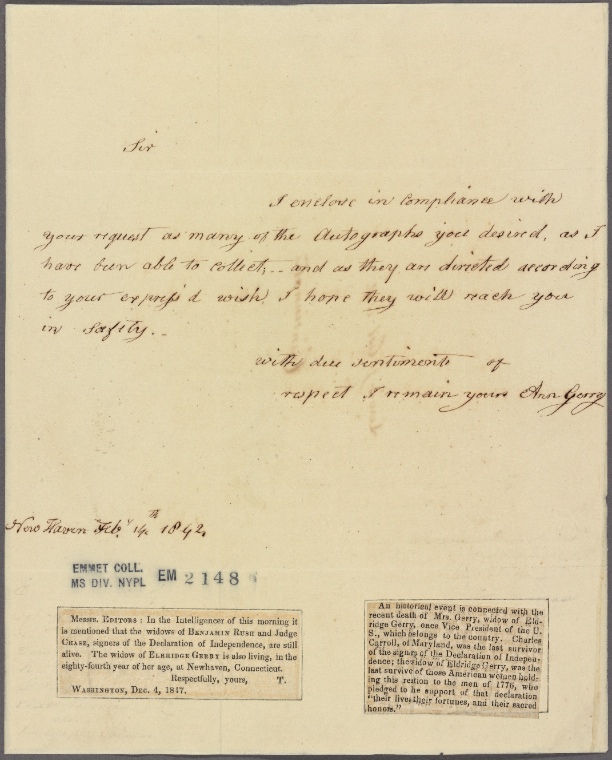 Sir
I enclose in compliance with
your request as many of the Autographs you desired, as I
have been able to collect; -- and as they are directed according
to your express'd wish, I hope they will reach you
in safety. --
with due sentiments of
respect I remain yours Ann Gerry
New Haven Feby 14th 1842
EMMET COLL.
MS DIV. NYPL
EM 2148
Messrs. Editors: In the Intelligencer of this morning it
is mentioned that the widows of Benjamin Rush and Judge
Chase, signers of the Declaration of Independence, are still
alive. The widow of Elbridge Gerry is also living, in the
eighty-fourth year of her age, at Newhaven, Connecticut.
Respectfully, yours, T.
Washington, Dec. 4, 1847.
An historical event is connected with the
recent death of Mrs. Gerry, widow of Eld-
ridge Gerry, once Vice President of the U.
S., which belongs to the country. Charles
Carroll, of Maryland, was the last survivor
of the signers of the Declaration of Indepen-
dence; the widow of Eldridge Gerry, was the
last survive of those American women hold-
ing this relation to the men of 1776, who
pledged to he support of that declaration
"their lives, their fortunes, and their sacred
honors."